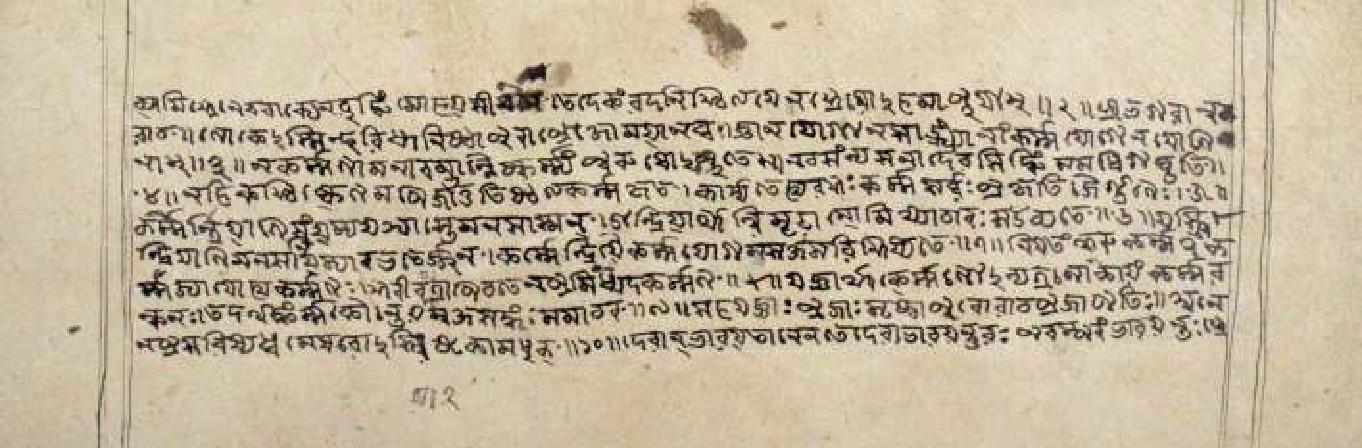 ব্যামিশ্রেণেব বাক্যেন বুদ্ধিং মোহয়সীব মে তদেকং বদ নিশ্চিত্য যেন শ্রেয়োঽহমাপ্নুয়াম্ ॥২॥ শ্রীভগবানু
বাচ॥ লোকেঽস্মিন্দ্বিবিধা নিষ্ঠা পুরা প্রোক্তা ময়ানঘ। জ্ঞানযোগেন সাংখ্যানাং কর্ম্মযোগেন যোগি
নাম্॥৩॥ ন কর্ম্মণামনারম্ভান্নৈষ্কর্ম্ম্যং পুরুষোঽশ্নুতে ন চ সংন্যসনাদেব সিদ্ধিং সমধিগচ্ছতি॥
৪॥ নহি কশ্চিৎক্ষণমপি জাতু তিষ্ঠত্যকর্ম্মকৃৎ। কার্য্যতে হ্যবশঃ কর্ম্ম সর্বঃ প্রকৃতিজৈর্গুণৈঃ।৫॥
কর্ম্মেন্দ্রিয়াণি সংযম্য য আস্তে মনসা স্মরন্। ইন্দ্রিয়ার্থান্বিমূঢাত্মা মিথ্যাচারঃ স উচ্যতে॥৬॥ যস্ত্বি
ন্দ্রিয়াণি মনসা নিয়ম্যারভতেঽর্জুন। কর্ম্মেন্দ্রিয়ৈঃ কর্ম্মযোগমসক্তঃ স বিশিষ্যতে॥৭॥ নিয়তং কুরু কর্ম্ম ত্বং ক
র্ম্ম জ্যায়ো হ্যকর্ম্মণঃ। শরীরযাত্রাপি চ তে ন প্রসিদ্ধ্যেদকর্ম্মণঃ॥৮॥ যজ্ঞার্থাৎকর্ম্মণোঽন্যত্র লোকোঽয়ং কর্ম্মব
ন্ধনঃ। তদর্থং কর্ম্ম কৌন্তেয় মুক্তসঙ্গঃ সমাচর॥৯॥ সহযজ্ঞাঃ প্রজাঃ সৃষ্ট্বা পুরোবাচ প্রজাপতিঃ॥ অনেন
প্রসবিষ্যধ্বমেষ বোঽস্ত্বিষ্টকামধুক্॥১০॥ দেবান্ভাবয়তানেন তে দেবা ভাবয়ন্তু বঃ পরস্পরং ভাবয়ন্তঃ শ্রে